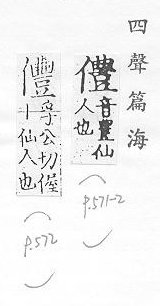 四聲篇海
僼
音豐仙
人也
(p.571-2)
孚公切偓
仙人也
(p.572)